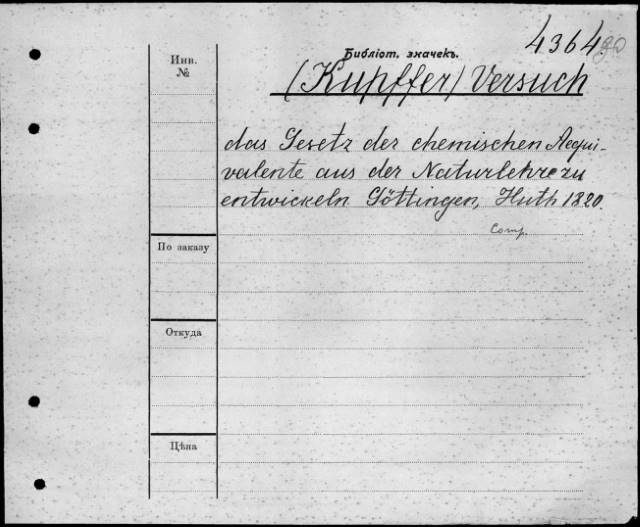 4364 90
Инв. №
Библіот. значекъ.
(Kupffer) Versuch
das Gesetz der chemischen Aequi-
valente aus der Naturlehre zu
entwickeln Göttingen, Huth 1820.
Comp.
По заказу
Откуда
Цѣна